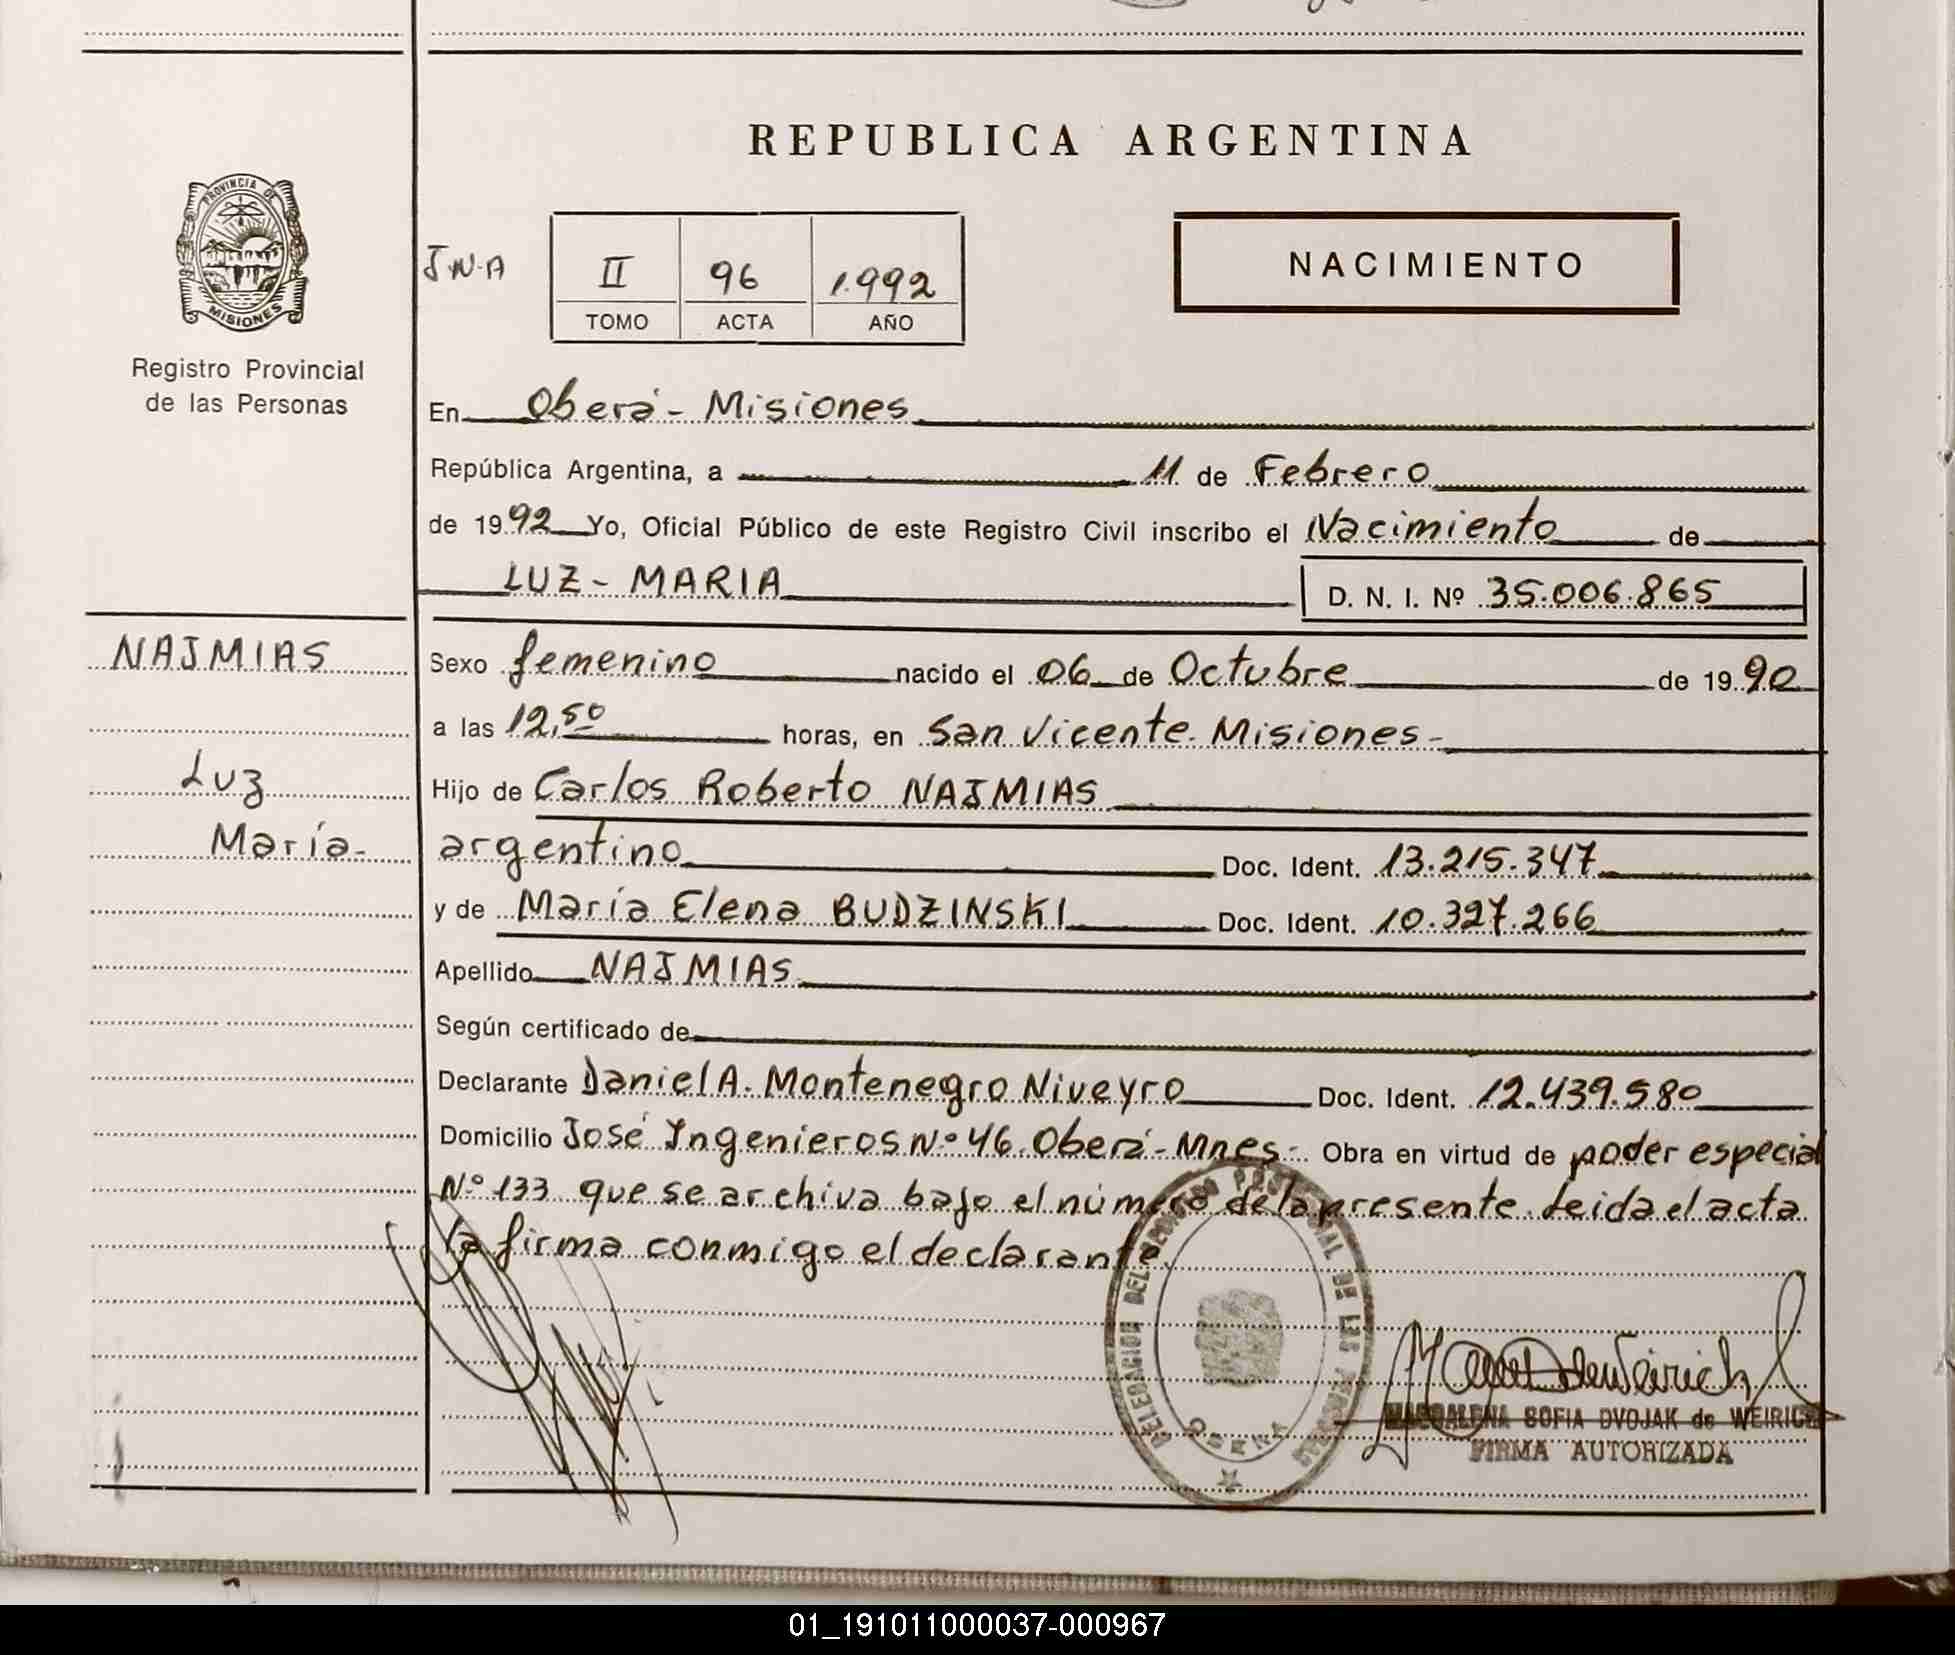 REPUBLICA ARGENTINA
PROVINCIA DE
MISIONES
Registro Provincial
de las Personas
II 96 1.992
TOMO ACTA AÑO
NACIMIENTO
En Oberá - Misiones
República Argentina, a 11 de Febrero
de 1992 Yo, Oficial Público de este Registro Civil inscribo el Nacimiento de
LUZ - MARIA D. N. I. Nº 35.006.865
NAJMIAS
Luz
María-
Sexo femenino nacido el 06 de Octubre de 1990
a las 12,50 horas, en San Vicente. Misiones-
Hijo de Carlos Roberto NAJMIAS
argentino Doc. Ident. 13.215.347
y de María Elena BUDZINSKI Doc. Ident. 10.327.266
Apellido NAJMIAS
Según certificado de
Declarante Daniel A. Montenegro Niveyro Doc. Ident. 12.439.580
Domicilio José Ingenieros Nº 46. Oberá - Mnes- Obra en virtud de poder especial
Nº 133 que se archiva bajo el número de la presente. Leida el acta
la firma conmigo el declarante.
DELEGACION DEL REGISTRO PROVINCIAL DE LAS PERSONAS
OBERA
MAGDALENA SOFIA DVOJAK de WEIRICH
FIRMA AUTORIZADA
01_191011000037-000967